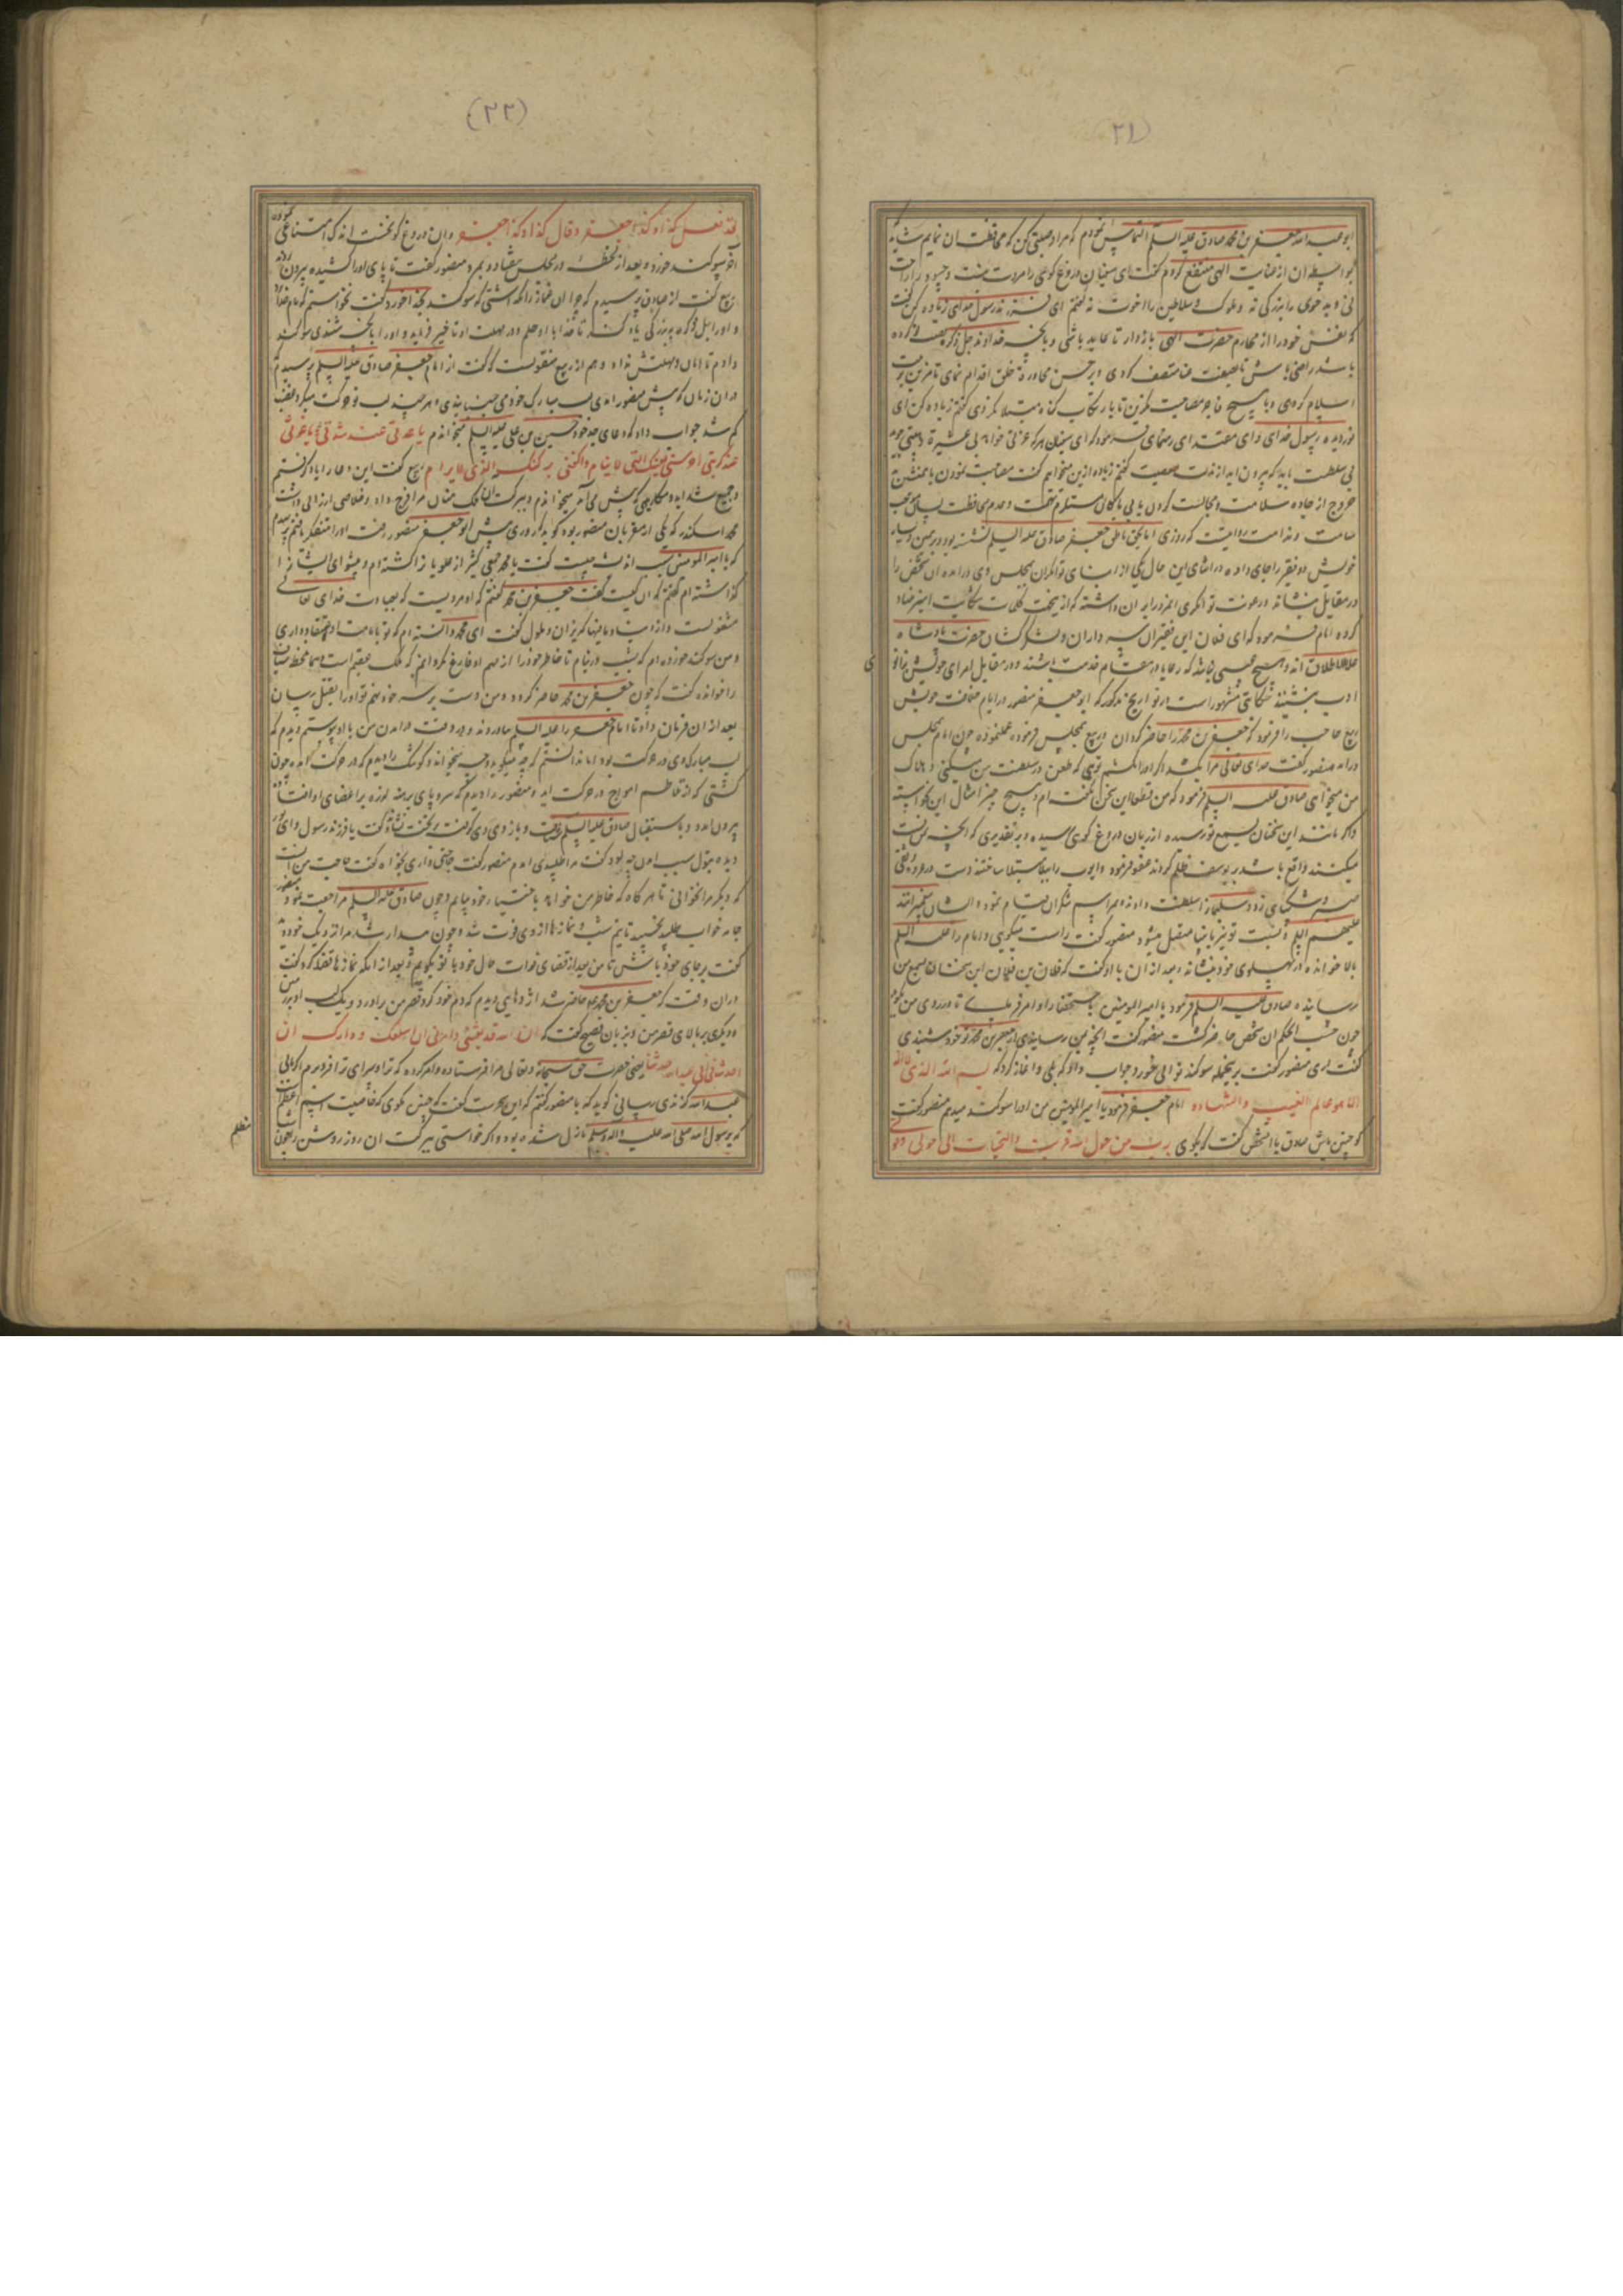 (۲۱)
ابو عبد الله جعفر بن محمد صادق علیه السلم التماس نمودم که مرا وصیتی کن که محافظت ان نمایم شاید
بواسطه ان از عنایت الهی منتفع کردم گفت ای سفیان دروغ کوی را مروت نیست و حسود را راحت
نی و بد خوی را بزرکی نه و ملوک و سلاطین را اخوت نه گفتم ای فرزند رسول خدای زیاده کن گفت
که نفس خود را از محارم حضرت الهی بازدار تا عابد باشی و بانچه خداوند جل ذکره قسمت کرده
باشد راضی باش تا بصفت غنا متصف کردی و بر حسن مجاورة خلق اقدام نمای تا مزین بزینت
اسلام کردی و با هیچ فاجر مصاحبت مکزین تا بارتکاب کناه مبتلا نکردی گفتم زیاده کن ای
نور دیده رسول خدای و ای مقتدای رهنمای فرمود که ای سفیان هر که عزتی خواهد بی عشیرة و هیبتی جوید
بی سلطنت باید که بیرون اید از مذلت معصیت گفتم زیاده ازین میخواهم گفت مصاحبت نمودن با
خروج از جاده سلامت و مجالست کردن با بی باکان مستلزم تهمت و عدم محافظت لسان موجب
ملامت و ندامت روایت که روزی امام بحق ناطق جعفر صادق علیه السلم نشسته بود و بر یمین و یسار
خویش دو فقیر را جای داده در اثنای این حال یکی از ابنای توانکران بمجلس وی درامده ان شخص را
در مقابل بنشاند و رعونت توانکری
کرده امام فرمود که ای فلان این فقیران سپه داران و لشکر کشان حضرت پادشاه
علی الاطلاق اند و هیچ عیبی نباشد که رعایا در مقام خدمت باشند و در مقابل امرای خویش بزانو
ی
ادب بنشینند حکایتی مشهور است و در تواریخ مذکور که ابو جعفر منصور در ایام خلافت خویش
ربیع حاجب را فرمود که جعفر بن محمد را حاضر کردان ربیع بمجلس فرموده عمل نموده چون امام بمجلس
درامد منصور گفت خدای تعالی مرا بکشد اکر او را نکشم تویی که طعن در سلطنت من میکنی و هلاک
من میخوای صادق علیه السلم فرمود که من قطعا این سخن نکفته ام و هیچ چیز امثال این
و اکر مانند این سخنان بسمع تو رسیده از زبان دروغ کوی رسیده و بر تقدیری که انچه
میکنند واقع باشد بر یوسف ظلم کردند عفو فرمود و ایوب را ببلا مبتلا ساختند دست در
صبر و شکیبای زد و سلیمان را سلطنت دادند و مراسم شکران قیام نمود و ایشان پیغمبران اند
علیهم السلم و نسبت تو نیز بانبیا متصل میشود منصور گفت راست میکویی و امام را علیه السلم
بالا خوانده در پهلوی خود بنشاند و بعد از ان با او گفت که فلان بن فلان این سخنان بسمع من
رسانیده صادق علیه السلم فرمود یا امیر المومنین باستحضار او امر فرمای تا در روی من بکوید
چون حسب الحکم ان شخص حاضر کشت منصور گفت انچه بمن رسانیدی از جعفر بن محمد تو خود شنیدی
گفت اری منصور گفت برین جمله سوکند توانی خورد جواب داد که بلی و اغاز کرد که بسم الله الذی لا اله
الا هو عالم الغیب و الشهاده امام جعفر فرمود یا امیر المومنین من او را سوکند میدهم منصور گفت
که چنین باش صادق با ان شخص گفت که بکوی بریت من حول الله و قوته و التجات الی حولی و قوتی
(۲۲)
قد فعل کذا و کذا جعفر و قال کذا و کذا جعفر و ان دروغ کو نخست اندک امتناعی نموده
اخر سوکند خورد و بعد از لحظه در مجلس بیفتاد و بمرد منصور گفت تا پای او را کشیده بیرون بردند
ربیع گفت از صادق پرسیدم که چرا ان غماز را نکذاشتی که سوکند بخدا خورد گفت نخواستم که نام خدا
و او را بزرکی یاد کند تا خدا با او حلم ورزد و در مهلت او تاخیر فرماید و او را بانچه شنیدی سوکند
دادم تا امان و مهلتش نداد و هم از ربیع منقولست که گفت از امام جعفر صادق علیه السلم پرسیدم
در ان زمان که پیش منصور امدی لب مبارک خود می جنبانیدی و هر چند لب تو حرکت میکرد غضب
کم شد جواب داد که دعای جد خود حسین بن علی علیه السلم میخواندم یا عدتی عند شدتی و یا غوثی
عند کربتی احرسنی بعینک التی لا ینام و اکنفنی برکنک الذی لا یرام ربیع گفت این دعا را یاد کرفتم
و جمیع شداید و مکاره که پیش می آمد میخواندم و ببرکت ان ملک منان مرا فرج داد و خلاصی ارزانی داشت
محمد اسکندر که یکی از مقربان منصور بود کوید که روزی پیش ابو جعفر منصور رفتم او را متفکر یافتم پرسیدم
که یا امیر المومنین سبب اندیشه چیست گفت یا محمد جمعی کثیر از علویانرا کشته ام و پیشوای ایشانرا
کذاشته ام گفتم که ان کیست گفت جعفر بن محمد گفتم که او مردیست که بعبادت خدای تعالی
مشغولست و از دنیا و مافیها کریزان و ملول گفت ای محمد دانسته ام که تو بامامت او اعتقاد داری
و من سوکند خورده ام که شب درنیابم تا خاطر خود را از مهم او فارغ نکردانم که ملک عقیم است و همان لحظه سیاف
را خوانده گفت که چون جعفر بن محمد حاضر کردد و من دست بر سر خود نهم تو او را بقتل رسان
بعد از ان فرمان داد تا امام جعفر را علیه السلم بیاوردند و در وقت درامدن من با او پیوستم و دیدم که
لب مبارک وی در حرکت بود اما ندانستم که چه میکوید و چه میخواند و کوشک را دیدم که در حرکت امد چون
کشتی که از تلاطم امواج در حرکت اید و منصور را دیدم که سر و پای برهنه لرزه بر اعضای او افتاده
بیرون امد و باستقبال صادق علیه السلم رفت و بازوی وی کرفت و بر تخت نشاند و گفت یا فرزند رسول و ای نور
دیده بتول سبب امدن چه بود گفت مرا طلبیدی امدم منصور گفت حاجتی داری بخواه گفت حاجت من انست
که دیکر مرا نخوانی تا هر کاه که خاطر من خواهد باختیار خود بیایم و چون صادق علیه السلم مراجعت نمود منصور
جامه خواب طلبید بخسبید تا نیم شب و نمازها از وی فوت شد و چون بیدار شد مرا نزدیک خود دید
گفت بر جای خود باش تا من بعد از قضای فوات حال خود با تو بکویم و بعد از انکه نمازها قضا کرد گفت
دران وقت که جعفر بن محمد حاضر شد اژدهایی دیدم که دم خود کرد قصر من براورد و یک لب او بزیر
و دیکری بر بالای قصر من و بزبان فصیح گفت که ان الله قد بعثنی و امرنی ان ابتلعک و دارک ان
احدثت فی ابی عبد الله حدثا یعنی حضرت حق سبحانه و تعالی مرا فرستاده و امر کرده که ترا و سرای ترا فروبرم اکر
عبد الله کزندی رسانی کوید که با منصور گفتم که این سحرست گفت که چنین مکوی که خاصیت اسم اعظم است
که برسول الله صلی الله علیه و اله و سلم نازل شده بود و اکر خواستی ببرکت ان روز روشن را چون شب
مظلم